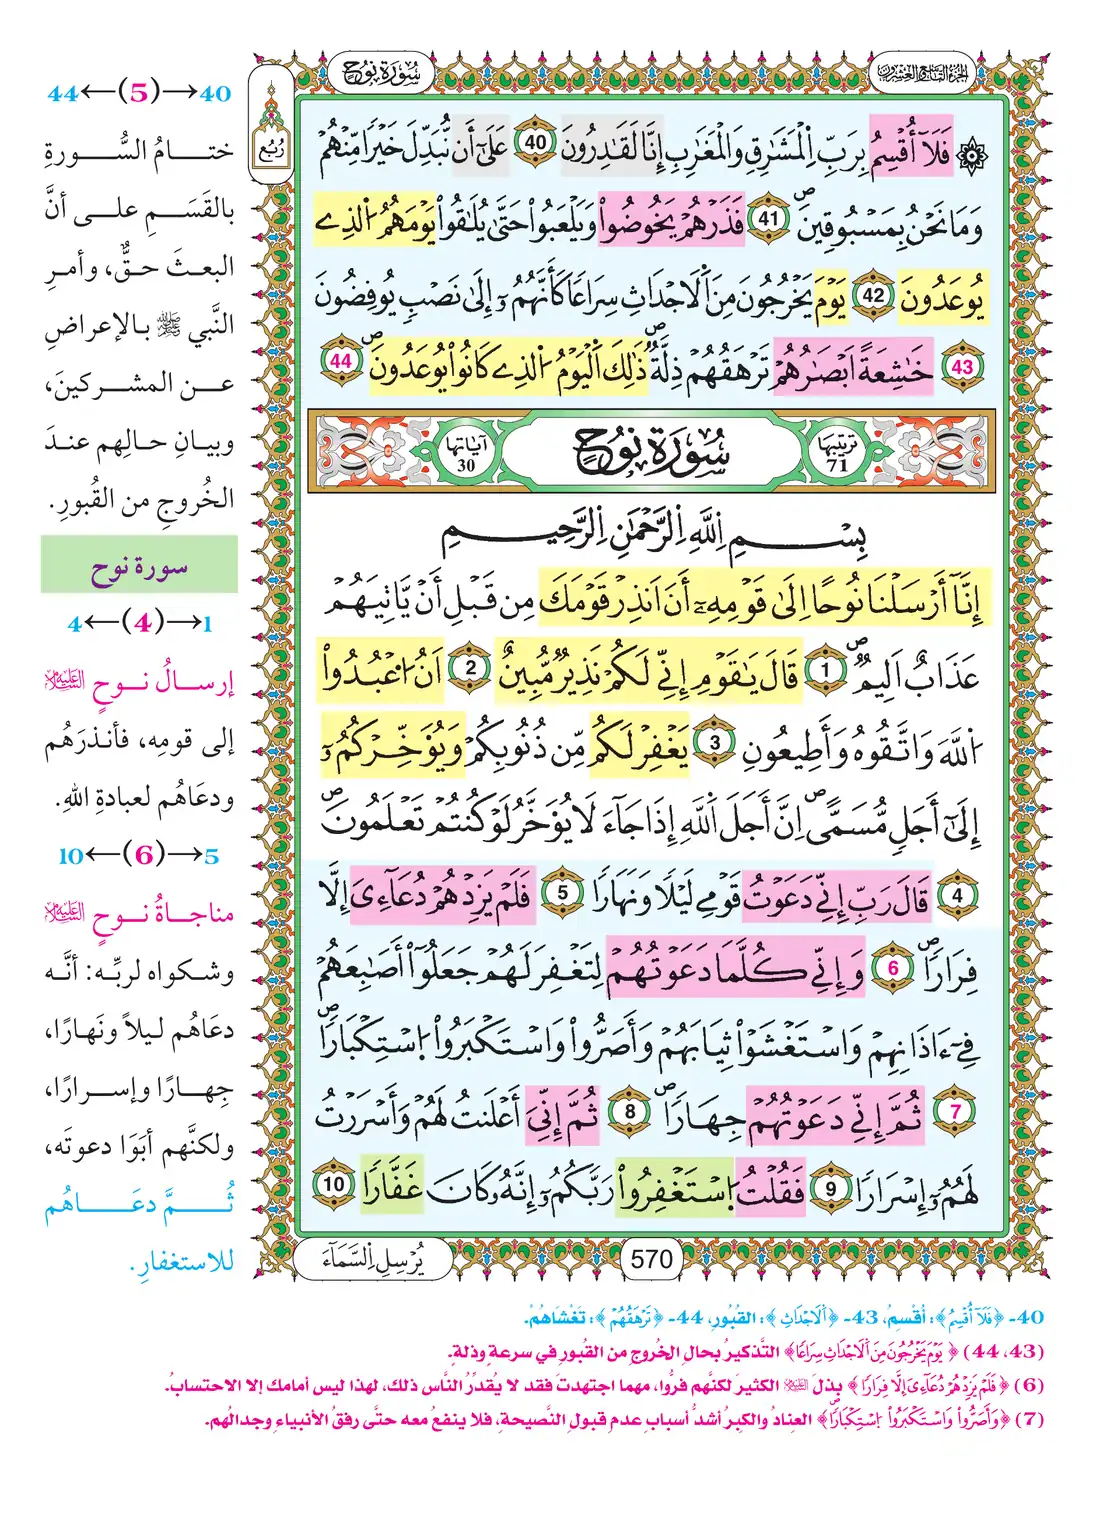 سُورَةُ نُوحٍ
الجزء التاسع والعشرون
رُبُع
۞ فَلَآ أُقْسِمُ بِرَبِّ اِ۬لْمَشَٰرِقِ وَالْمَغَٰرِبِ إِنَّا لَقَٰدِرُونَ 40 عَلَيٰٓ أَن نُّبَدِّلَ خَيْراٗ مِّنْهُمْ
وَمَا نَحْنُ بِمَسْبُوقِينَۖ 41 فَذَرْهُمْ يَخُوضُواْ وَيَلْعَبُواْ حَتَّىٰ يُلَٰقُواْ يَوْمَهُمُ اُ۬لذِے
يُوعَدُونَ 42 يَوْمَ يَخْرُجُونَ مِنَ اَ۬لَاجْدَاثِ سِرَاعاٗ كَأَنَّهُمُۥٓ إِلَىٰ نَصْبٖ يُوفِضُونَ
43 خَٰشِعَةً اَبْصَٰرُهُمْ تَرْهَقُهُمْ ذِلَّةٞۖ ذَٰلِكَ اَ۬لْيَوْمُ اُ۬لذِے كَانُواْ يُوعَدُونَۖ 44
ترتيبها 71
سُورَةُ نُوحٍ
آياتها 30
بِسْمِ اِ۬للَّهِ اِ۬لرَّحْمَٰنِ اِ۬لرَّحِيمِ
إِنَّآ أَرْسَلْنَا نُوحاً اِلَىٰ قَوْمِهِۦٓ أَنَ اَنذِرْ قَوْمَكَ مِن قَبْلِ أَنْ يَّاتِيَهُمْ
عَذَابٌ اَلِيمٞۖ 1 قَالَ يَٰقَوْمِ إِنِّے لَكُمْ نَذِيرٞ مُّبِينٌ 2 اَنُ اُ۟عْبُدُواْ
اُ۬للَّهَ وَاتَّقُوهُ وَأَطِيعُونِ 3 يَغْفِرْ لَكُم مِّن ذُنُوبِكُمْ وَيُؤَخِّرْكُمُۥٓ
إِلَىٰٓ أَجَلٖ مُّسَمّيًۖ اِنَّ أَجَلَ اَ۬للَّهِ إِذَا جَآءَ لَا يُؤَخَّرُ لَوْ كُنتُمْ تَعْلَمُونَۖ
4 قَالَ رَبِّ إِنِّے دَعَوْتُ قَوْمِے لَيْلاٗ وَنَهَاراٗ 5 فَلَمْ يَزِدْهُمْ دُعَآءِيَ إِلَّا
فِرَاراٗۖ 6 وَإِنِّے كُلَّمَا دَعَوْتُهُمْ لِتَغْفِرَ لَهُمْ جَعَلُوٓاْ أَصَٰبِعَهُمْ
فِےٓ ءَاذَانِهِمْ وَاسْتَغْشَوْاْ ثِيَابَهُمْ وَأَصَرُّواْ وَاسْتَكْبَرُواْ اُ۪سْتِكْبَاراٗۖ
7 ثُمَّ إِنِّے دَعَوْتُهُمْ جِهَاراٗۖ 8 ثُمَّ إِنِّيَ أَعْلَنتُ لَهُمْ وَأَسْرَرْتُ
لَهُمُۥٓ إِسْرَاراٗ 9 فَقُلْتُ اُ۪سْتَغْفِرُواْ رَبَّكُمُۥٓ إِنَّهُۥ كَانَ غَفَّاراٗ 10
يُرْسِلِ اِ۬لسَّمَآءَ
570
40→(5)←44
ختامُ السُّورةِ
بالقَسَمِ على أنَّ
البعثَ حقٌّ، وأمرِ
النَّبي ﷺ بالإعراضِ
عن المشركينَ،
وبيانِ حالِهم عندَ
الخُروجِ من القُبورِ.
سورة نوح
1→(4)←4
إرسالُ نوحٍ عليه السلام
إلى قومِه، فأنذرَهُم
ودعَاهُم لعبادةِ اللهِ.
5→(6)←10
مناجاةُ نوحٍ عليه السلام
وشكواه لربِّه: أنَّه
دعَاهُم ليلاً ونَهارًا،
جِهارًا وإسرارًا،
ولكنَّهم أبَوَا دعوتَه،
ثُمَّ دعَاهُم
للاستغفارِ.
40- ﴿فَلَآ أُقْسِمُ﴾: أُقْسِمُ، 43- ﴿اَ۬لَاجْدَاثِ﴾: القُبُورِ، 44- ﴿تَرْهَقُهُمْ﴾: تَغْشَاهُمْ.
(43، 44) ﴿يَوْمَ يَخْرُجُونَ مِنَ اَ۬لَاجْدَاثِ سِرَاعاٗ﴾ التَّذكيرُ بحالِ الخُروجِ من القُبورِ في سرعةٍ وذلةٍ.
(6) ﴿فَلَمْ يَزِدْهُمْ دُعَآءِيَ إِلَّا فِرَاراٗ﴾ بذلَ عليه السلام الكثيرَ لكنَّهم فرُّوا، مهما اجتهدتَ فقد لا يُقدِّرُ النَّاس ذلك، لهذا ليس أمامك إلا الاحتسابُ.
(7) ﴿وَأَصَرُّواْ وَاسْتَكْبَرُواْ اُ۪سْتِكْبَاراٗۖ﴾ العنادُ والكِبرُ أشدُّ أسبابِ عدمِ قبولِ النَّصيحةِ، فلا ينفعُ معه حتَّى رفقُ الأنبياءِ وجدالُهم.